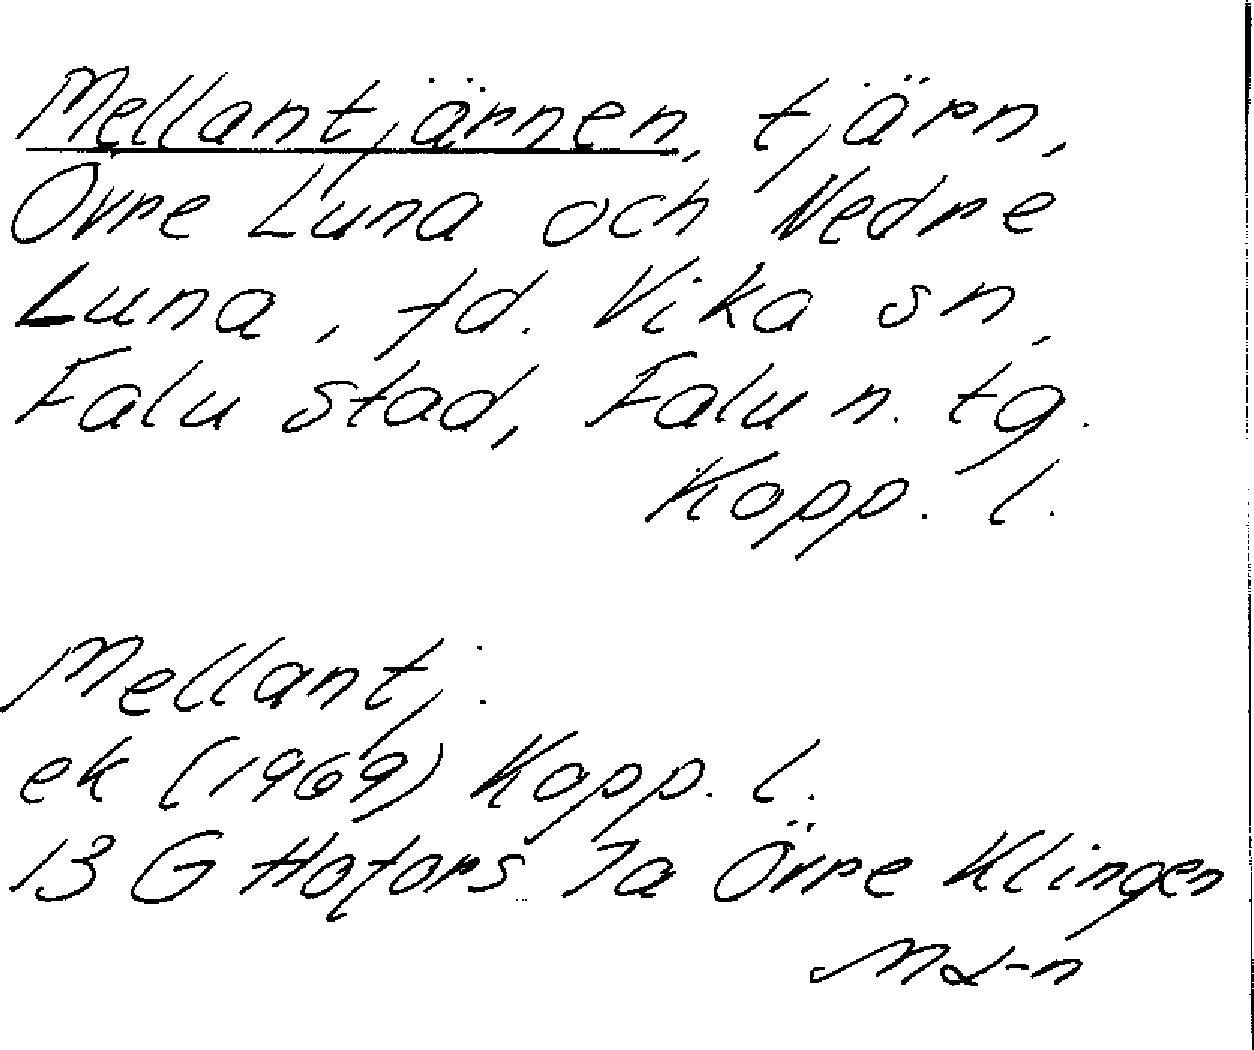 Mellantjärnen, tjärn,
Övre Luna och Nedre
Luna, fd. Vika sn,
Falu stad, Falu n. tg.
Kopp. l.
Mellantj:
ek (1969) Kopp. l.
13 G Hofors 7a Övre Klingen